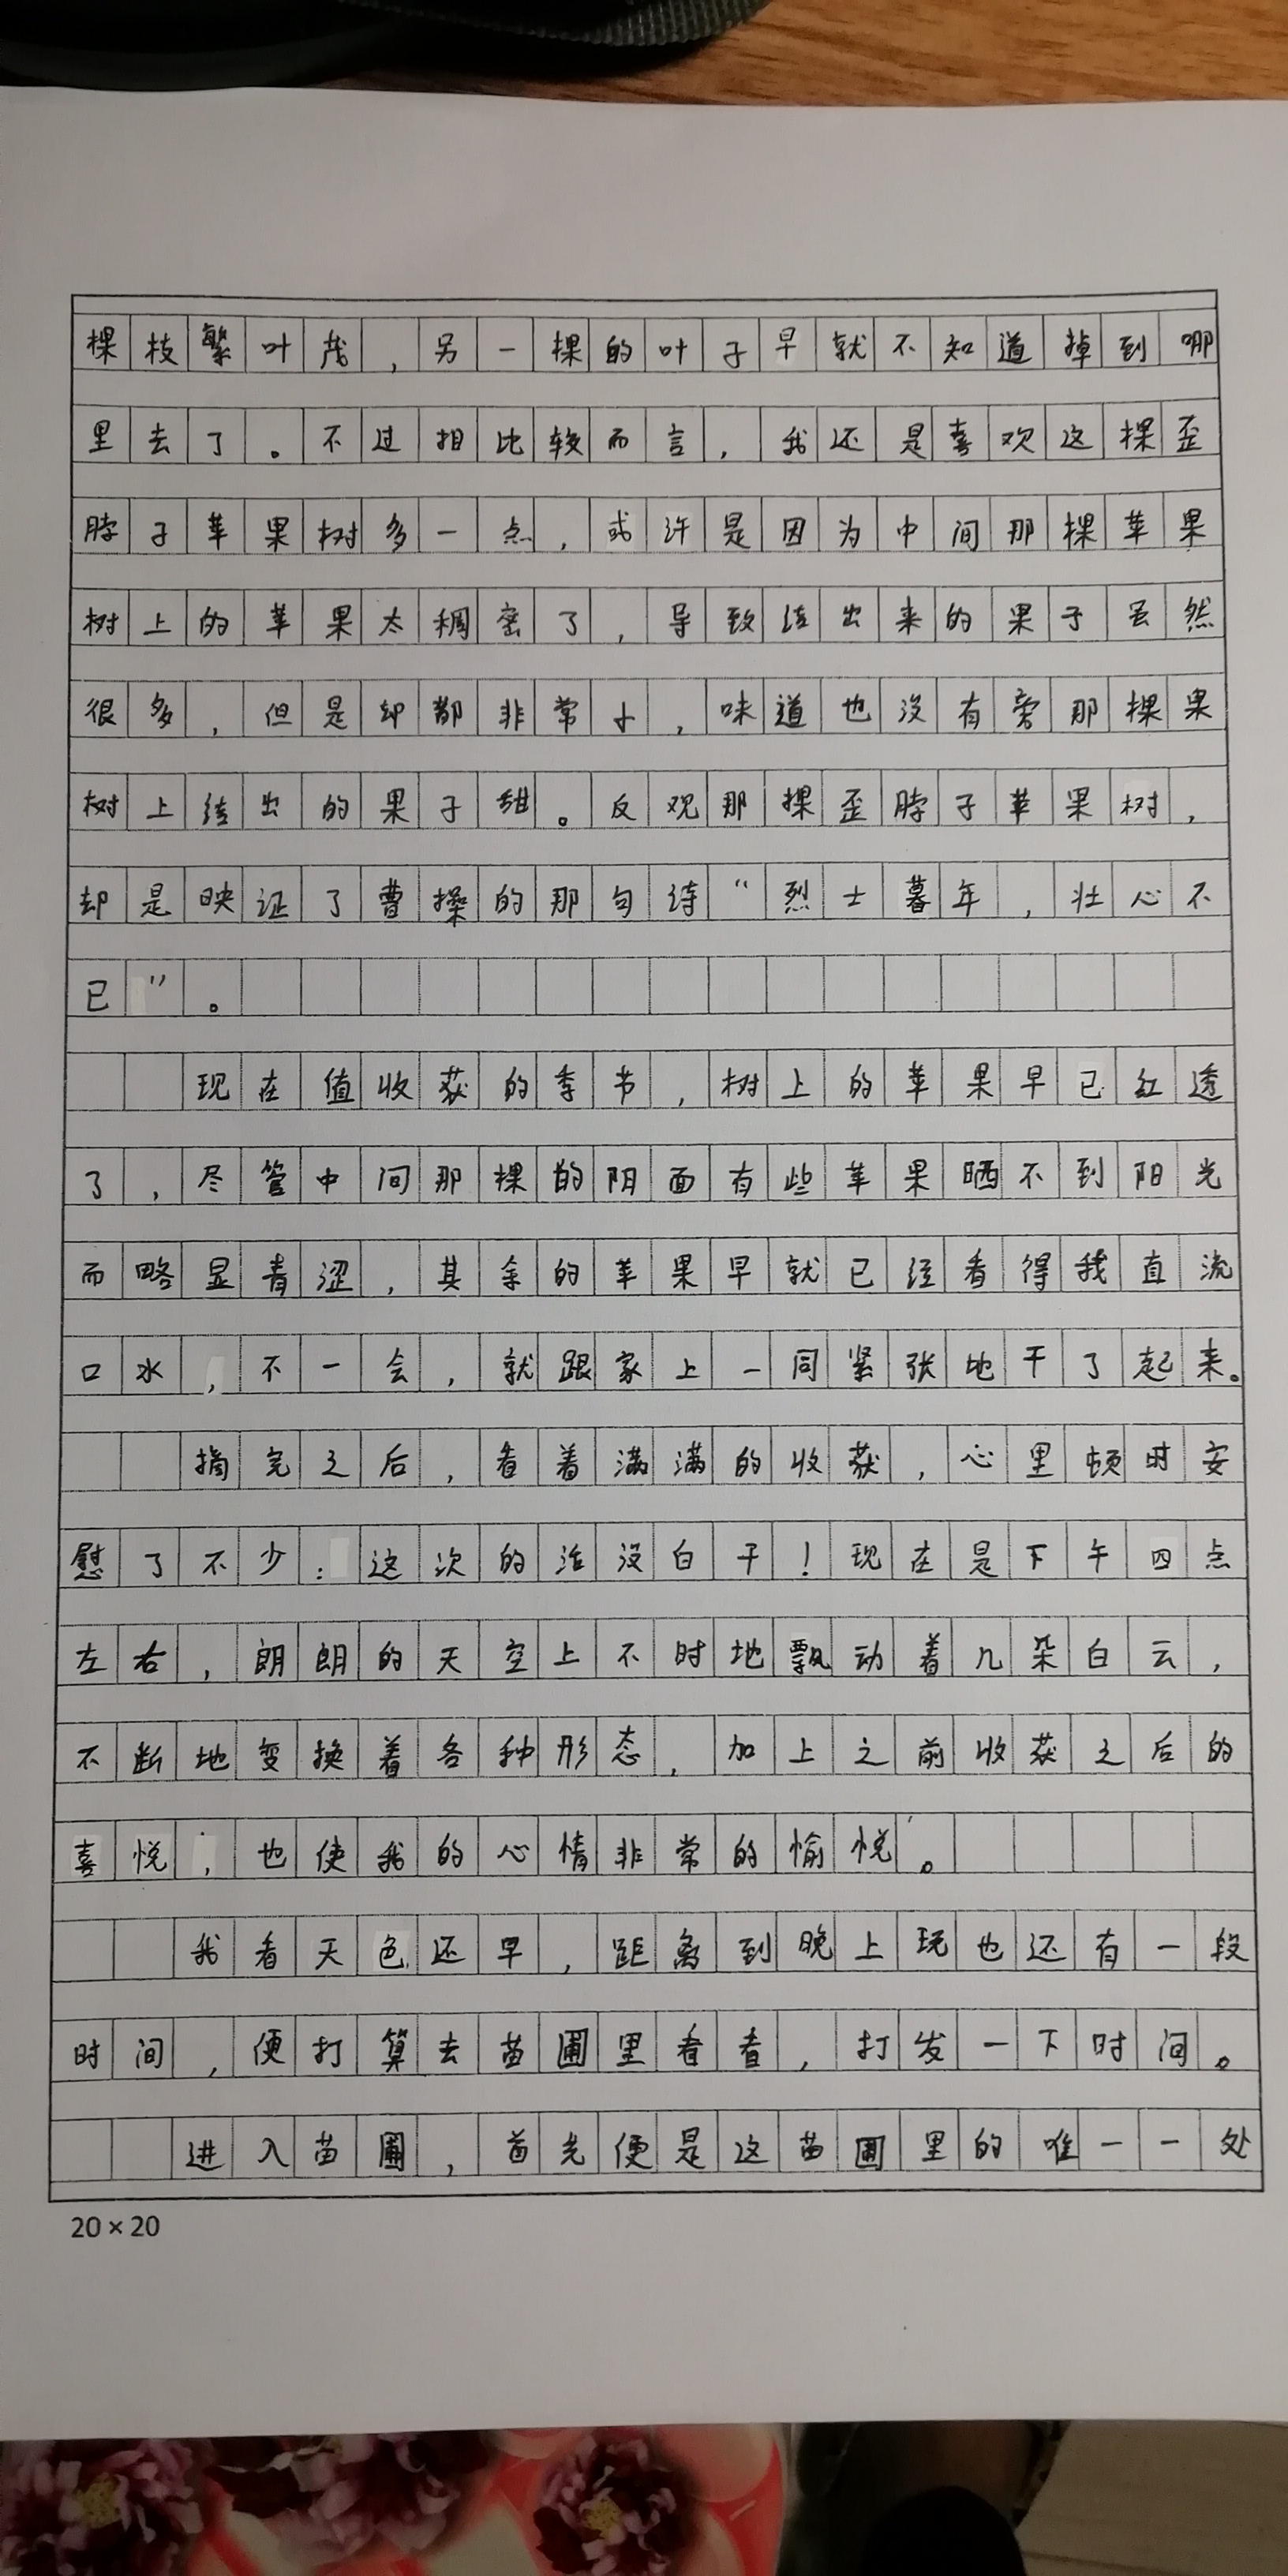 棵枝繁叶茂，另一棵的叶子早就不知道掉到哪
里去了。不过相比较而言，我还是喜欢这棵歪
脖子苹果树多一点，或许是因为中间那棵苹果
树上的苹果太稠密了，导致结出来的果子虽然
很多，但是却都非常小，味道也没有旁那棵果
树上结出的果子甜。反观那棵歪脖子苹果树，
却是映证了曹操的那句诗“烈士暮年，壮心不
已”。
现在值收获的季节，树上的苹果早已红透
了，尽管中间那棵的阴面有些苹果晒不到阳光
而略显青涩，其余的苹果早就已经看得我直流
口水，不一会，就跟家上一同紧张地干了起来。
摘完之后，看着满满的收获，心里顿时安
慰了不少：这次的活没白干！现在是下午四点
左右，朗朗的天空上不时地飘动着几朵白云，
不断地变换着各种形态，加上之前收获之后的
喜悦；也使我的心情非常的愉悦。
我看天色还早，距离到晚上玩也还有一段
时间，便打算去苗圃里看看，打发一下时间。
进入苗圃，首先便是这苗圃里的唯一一处
20×20